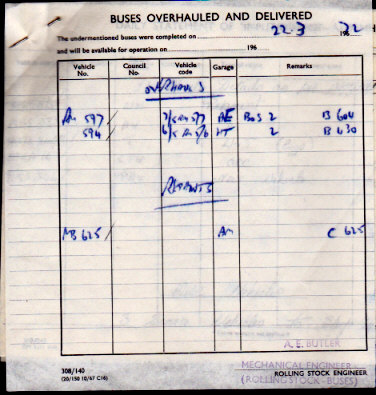 BUSES OVERHAULED AND DELIVERED
The undermentioned buses were completed on 22.3 196 72
and will be available for operation on 196
Vehicle No. Council No. Vehicle code Garage Remarks
OVERHAULS
597 2 B 604
594 2 B 630
REPAINTS
MB 625 AM C 625
A. E. BUTLER
MECHANICAL ENGINEER
308/140 ROLLING STOCK ENGINEER
(20/150 10/67 C16) (ROLLING STOCK - BUSES)